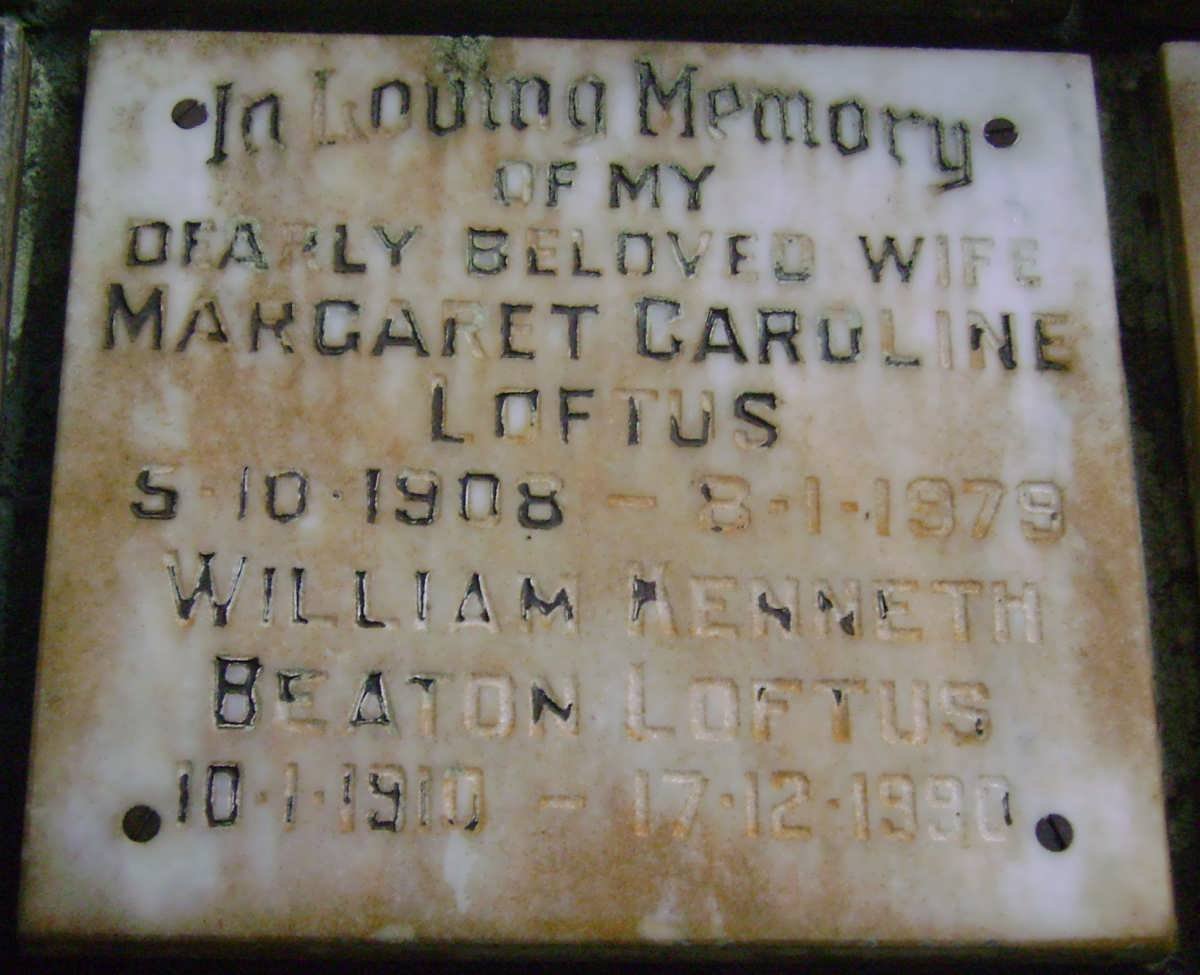 In Loving Memory
OF MY
DEARLY BELOVED WIFE
MARGARET CAROLINE
LOFTUS
5·10·1908 – 8·1·1979
WILLIAM KENNETH
BEATON LOFTUS
10·1·1910 – 17·12·1990